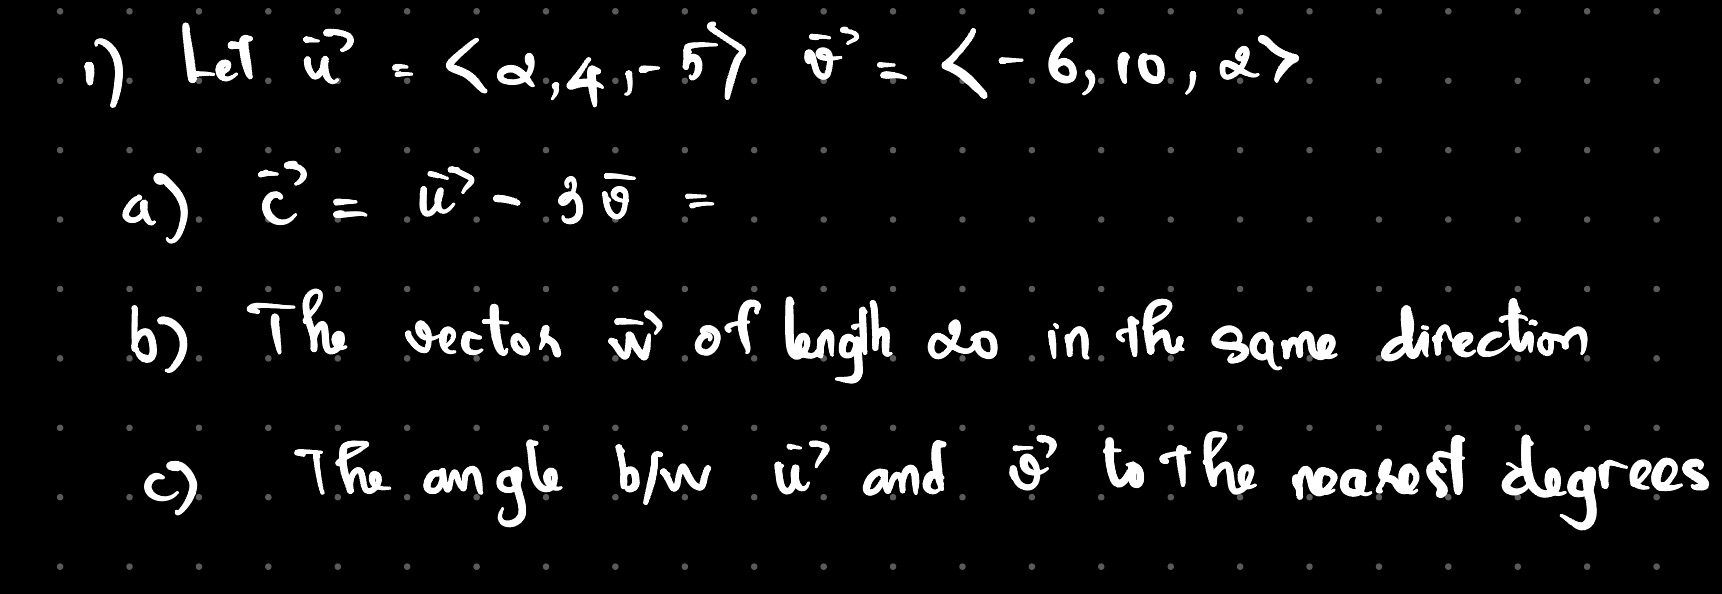 1). Let u⃗ = <2,4,-5> v⃗ = <-6,10,2>
a). c⃗ = u⃗ - 3v̄ =
b). The vector w⃗ of length 20 in the same direction
c). The angle b/w u⃗ and v⃗ to the nearest degrees